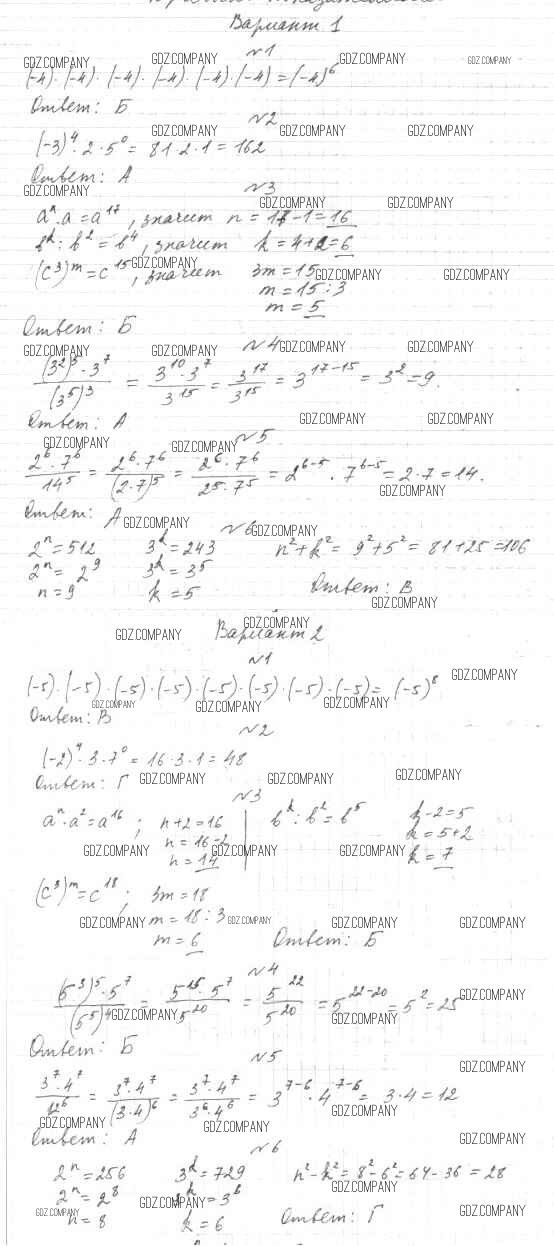 Вариант 1
№1
(-4)·(-4)·(-4)·(-4)·(-4)·(-4)=(-4)⁶
Ответ: Б
№2
(-3)⁴·2·5⁰=81·2·1=162
Ответ: А
№3
aⁿ·a=a¹⁷, значит n=17-1=16
bᵏ:b²=b⁴, значит k=4+2=6
(c³)ᵐ=c¹⁵, значит 3m=15
m=15:3
m=5
Ответ: Б
№4
(3²)⁵·3⁷/(3⁵)³ = 3¹⁰·3⁷/3¹⁵ = 3¹⁷/3¹⁵ = 3¹⁷⁻¹⁵ = 3² = 9.
Ответ: А
№5
2⁶·7⁶/14⁵ = 2⁶·7⁶/(2·7)⁵ = 2⁶·7⁶/2⁵·7⁵ = 2⁶⁻⁵·7⁶⁻⁵ = 2·7 = 14.
Ответ: А
№6
2ⁿ=512 3ᵏ=243 n²+k²=9²+5²=81+25=106
2ⁿ=2⁹ 3ᵏ=3⁵
n=9 k=5 Ответ: В
Вариант 2
№1
(-5)·(-5)·(-5)·(-5)·(-5)·(-5)·(-5)·(-5)=(-5)⁸
Ответ: В
№2
(-2)⁴·3·7⁰=16·3·1=48
Ответ: Г
№3
aⁿ·a²=a¹⁶; n+2=16 bᵏ:b²=b⁵ k-2=5
n=16-2 k=5+2
n=14 k=7
(c³)ᵐ=c¹⁸; 3m=18
m=18:3
m=6 Ответ: Б
№4
(5³)⁵·5⁷/(5⁵)⁴ = 5¹⁵·5⁷/5²⁰ = 5²²/5²⁰ = 5²²⁻²⁰ = 5² = 25
Ответ: Б
№5
3⁷·4⁷/12⁶ = 3⁷·4⁷/(3·4)⁶ = 3⁷·4⁷/3⁶·4⁶ = 3⁷⁻⁶·4⁷⁻⁶ = 3·4 = 12
Ответ: А
№6
2ⁿ=256 3ᵏ=729 n²-k²=8²-6²=64-36=28
2ⁿ=2⁸ 3ᵏ=3⁶
n=8 k=6 Ответ: Г
GDZ.COMPANY